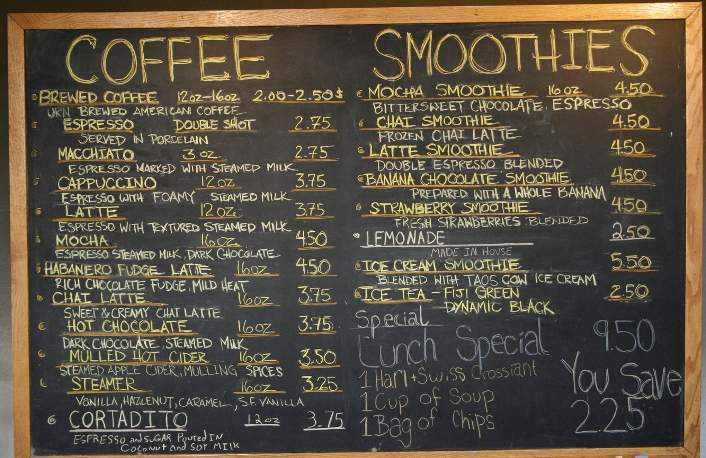 COFFEE
BREWED COFFEE 12oz-16oz 2.00-2.50$
URN BREWED AMERICAN COFFEE
ESPRESSO DOUBLE SHOT 2.75
SERVED IN PORCELAIN
MACCHIATO 3 oz 2.75
ESPRESSO MARKED WITH STEAMED MILK
CAPPUCCINO 12oz 3.75
ESPRESSO WITH FOAMY STEAMED MILK
LATTE 12oz 3.75
ESPRESSO WITH TEXTURED STEAMED MILK
MOCHA 16oz 4.50
ESPRESSO STEAMED MILK DARK CHOCOLATE
HABANERO FUDGE LATTE 16oz 4.50
RICH CHOCOLATE FUDGE, MILD HEAT
CHAI LATTE 16oz 3.75
SWEET & CREAMY CHAI LATTE
HOT CHOCOLATE 16oz 3.75
DARK CHOCOLATE, STEAMED MILK
MULLED HOT CIDER 16oz 3.50
STEAMED APPLE CIDER, MULLING SPICES
STEAMER 16oz 3.25
VANILLA, HAZLENUT, CARAMEL, S.F. VANILLA
CORTADITO 12oz 3.75
ESPRESSO and SUGAR Poured IN
Coconut and SOY MILK
SMOOTHIES
MOCHA SMOOTHIE 16oz 4.50
BITTERSWEET CHOCOLATE, ESPRESSO
CHAI SMOOTHIE 4.50
FROZEN CHAI LATTE
LATTE SMOOTHIE 4.50
DOUBLE ESPRESSO BLENDED
BANANA CHOCOLATE SMOOTHIE 4.50
PREPARED WITH A WHOLE BANANA
STRAWBERRY SMOOTHIE 4.50
FRESH STRAWBERRIES BLENDED
LEMONADE 2.50
MADE IN HOUSE
ICE CREAM SMOOTHIE 5.50
BLENDED WITH TAOS COW ICE CREAM
ICE TEA - FIJI GREEN 2.50
DYNAMIC BLACK
Special
Lunch Special 9.50
1 Ham + Swiss Crossiant
1 Cup of Soup
1 Bag of Chips
You Save
2.25